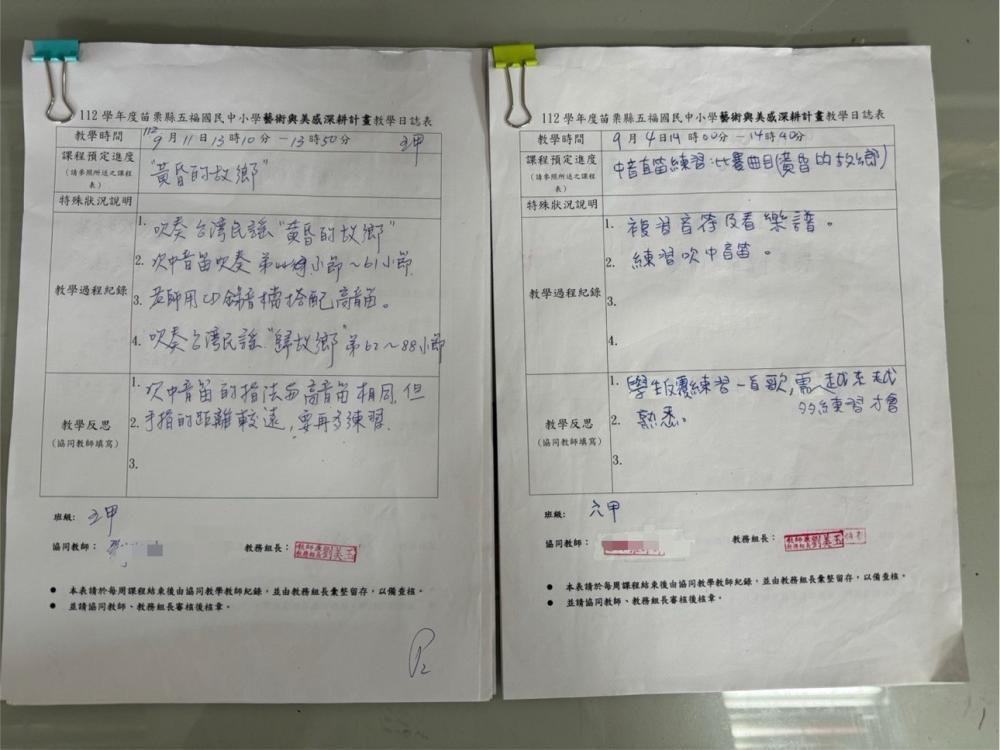 112 學年度苗栗縣五福國民中小學藝術與美感深耕計畫教學日誌表
教學時間
112 9 月 11 日 13 時 10 分 － 13 時 50 分
五甲
課程預定進度
(請參照所送之課程表)
"黃昏的故鄉"
特殊狀況說明
教學過程紀錄
1. 吹奏台湾民謠"黃昏的故鄉"
2. 次中音笛吹奏 第 小節～61小節
3. 老師用CD錄音檔搭配高音笛。
4. 吹奏台湾民謠"歸故鄉"第62～88小節
教學反思
(協同教師填寫)
1. 次中音笛的指法与高音笛相同,但
2. 手指的距離較遠,要再多練習.
3.
班級: 五甲
協同教師：
教務組長：
教務組長劉美玉
● 本表請於每周課程結束後由協同教學教師紀錄，並由教務組長彙整留存，以備查核。
● 並請協同教師、教務組長審核後核章。
112 學年度苗栗縣五福國民中小學藝術與美感深耕計畫教學日誌表
教學時間
9 月 4 日 14 時 00 分 － 14 時 40 分
課程預定進度
(請參照所送之課程表)
中音直笛練習:比賽曲目(黃昏的故鄉)
特殊狀況說明
教學過程紀錄
1. 複習音符及看樂譜。
2. 練習吹中音笛。
3.
4.
教學反思
(協同教師填寫)
1. 學生反覆練習一首歌,需 越來越
多多練習才會
2. 熟悉。
3.
班級: 六甲
協同教師：
教務組長：
教務組長劉美玉
● 本表請於每周課程結束後由協同教學教師紀錄，並由教務組長彙整留存，以備查核。
● 並請協同教師、教務組長審核後核章。